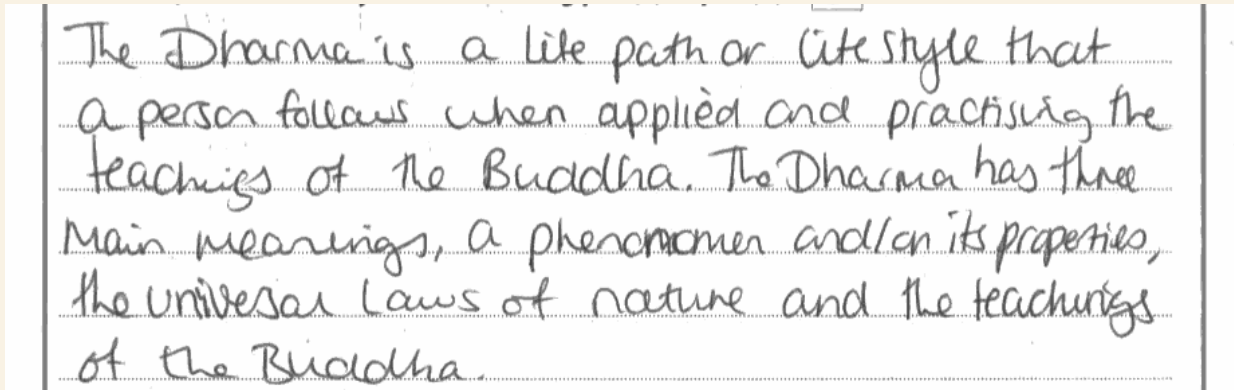 The Dharma is a life path or life style that
a person follows when applied and practising the
teachings of the Buddha. The Dharma has three
main meanings, a phenomomen and/or its properties,
the univesal laws of nature and the teachings
of the Buddha.